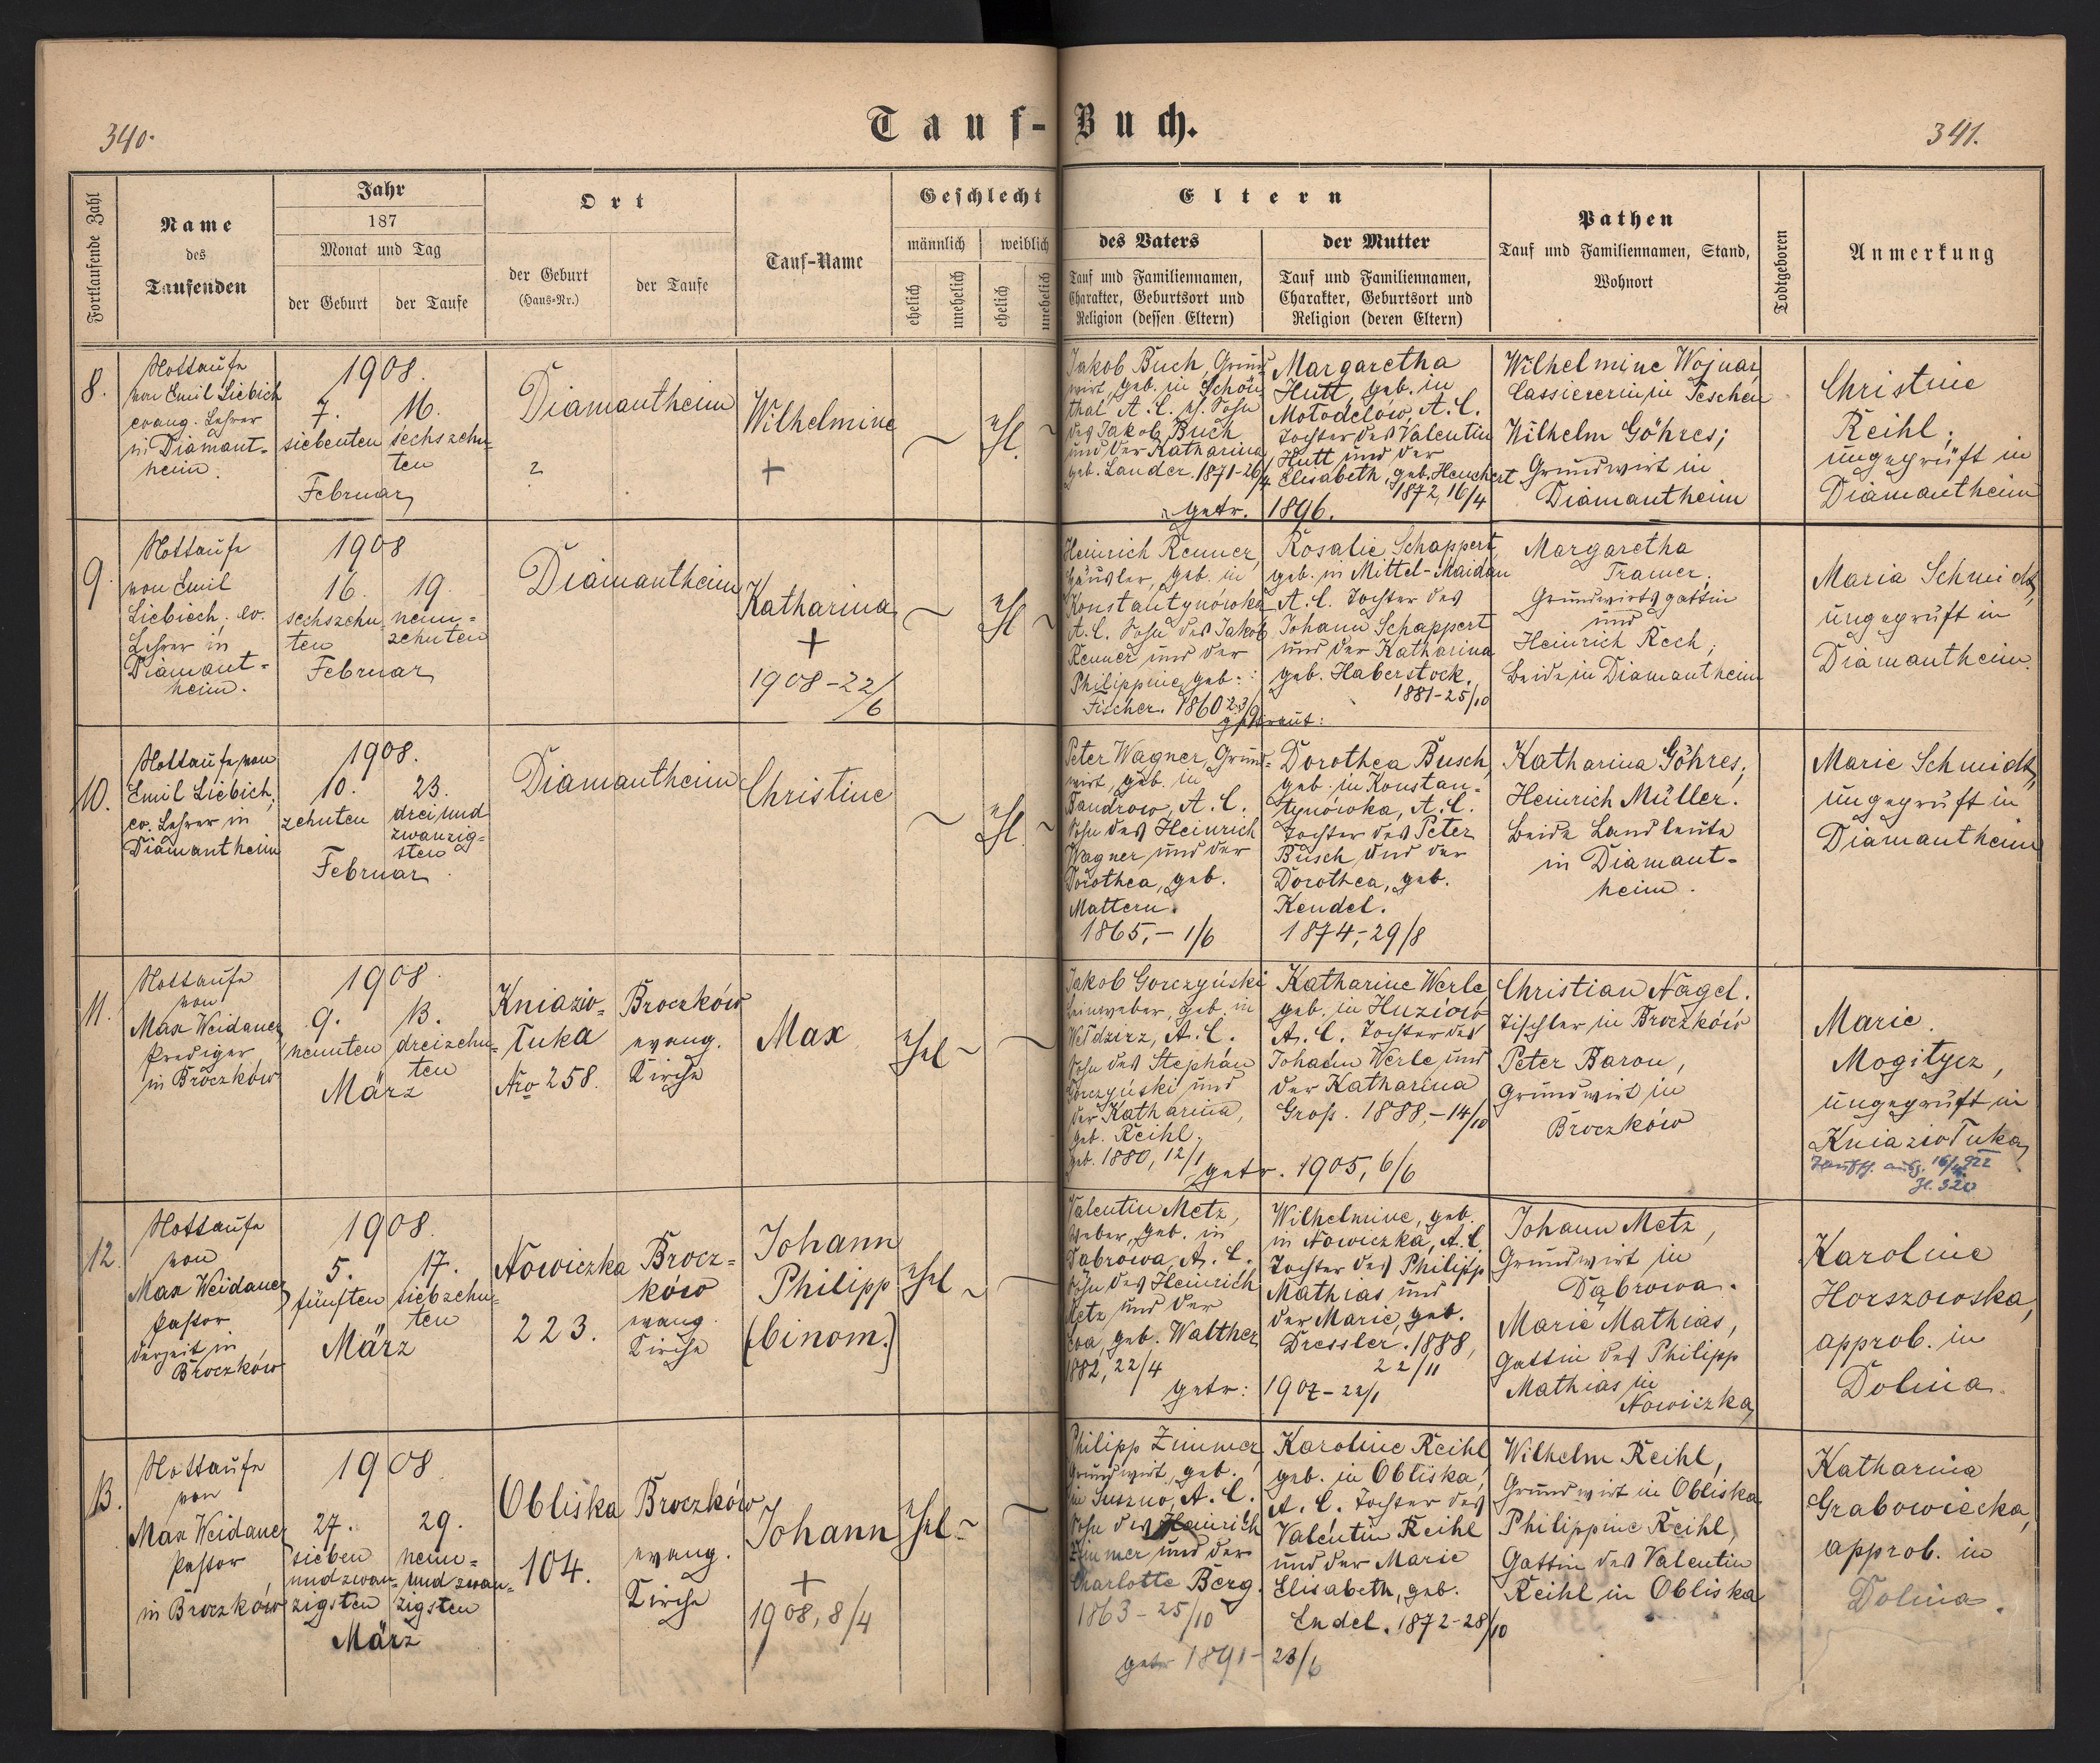 340.
Tauf-Buch.
341.
Fortlaufende Zahl
Name
des
Taufenden
Jahr
187
Monat und Tag
der Geburt
der Taufe
Ort
der Geburt
(Haus-Nr.)
der Taufe
Tauf-Name
Geschlecht
männlich
weiblich
ehelich
unehelich
ehelich
unehelich
Eltern
des Vaters
Tauf und Familiennamen,
Charakter, Geburtsort und
Religion (dessen Eltern)
der Mutter
Tauf und Familiennamen,
Charakter, Geburtsort und
Religion (deren Eltern)
Pathen
Tauf und Familiennamen, Stand,
Wohnort
Todtgeboren
Anmerkung
8.
Nottaufe
von Emil Liebich
evang. Lehrer
in Diamant-
heim.
1908.
7.
siebenten
16.
sechszehn-
ten
Februar
Diamantheim
Wilhelmine
+
~
ehl.
~
Jakob Buch, Grund-
wirt, geb. in Schön-
thal, A. C. Sohn
des Jakob Buch
und der Katharina
geb. Lander. 1871-26/4
Margaretha
Hutt, geb. in
Mołodełów, A. C.
Tochter des Valentin
Hutt und der
Elisabeth, geb. Heuchert
1872, 16/4
getr. 1896.
Wilhelmine Wojnar,
Cassiererin in Teschen
Wilhelm Göhres;
Grundwirt in
Diamantheim
Christine
Reihl;
ungeprüft in
Diamantheim
9.
Nottaufe
von Emil
Liebiech, ev.
Lehrer in
Diamant-
heim.
1908
16.
sechszehn-
ten
19.
neun-
zehnten
Februar
Diamantheim
Katharina
+
1908-22/6
~
ehl
~
Heinrich Renner,
Häusler, geb. in
Konstantynówka
A. C. Sohn des Jakob
Renner und der
Philippine, geb:
Fischer. 1860 23/9
Rosalie Schappert,
geb. in Mittel-Maidan
A. C. Tochter des
Johann Schappert
und der Katharina
geb. Haberstock.
1881-25/10
getraut:
Margaretha
Tramer,
Grundwirtsgattin
und
Heinrich Rech;
Beide in Diamantheim
Maria Schmidt,
ungeprüft in
Diamantheim.
10.
Nottaufe von
Emil Liebich,
ev. Lehrer in
Diamantheim
1908.
10.
zehnten
23.
dreiund
zwanzig-
sten
Februar
Diamantheim
Christine
~
ehl.
~
Peter Wagner, Grund-
wirt, geb. in
Bandrow, A. C.
Sohn des Heinrich
Wagner und der
Dorothea, geb.
Mattern.
1865,-1/6
Dorothea Busch,
geb. in Konstan-
tynówka, A. C.
Tochter des Peter
Busch und der
Dorothea, geb.
Kendel.
1874,-29/8
Katharina Göhres;
Heinrich Müller.
Beide Landleute
in Diamant-
heim.
Marie Schmidt,
ungeprüft in
Diamantheim
11.
Nottaufe
von
Max Weidauer
Prediger
in Broczków
1908.
9.
neunten
13.
dreizehn-
ten
März
Kniazio-
łuka
Nro 258.
Broczków
evang.
Kirche
Max
ehel
~
~
Jakob Gorczyński
Leinweber, geb. in
Wełdzirz, A. C.
Sohn des Stephan
Gorczyński und
der Katharina,
geb. Reihl,
geb. 1880, 12/1
Katharine Werle
geb. in Huziów
A. C. Tochter des
Johann Werle und
der Katharina
Groß. 1888,-14/10
getr. 1905, 6/6
Christian Nagel.
Tischler in Broczków
Peter Baron,
Grundwirt in
Broczków
Marie
Mogitycz,
ungeprüft in
Kniaziołuka
Zl. 320
12.
Nottaufe
von
Max Weidauer
Pastor
derzeit in
Broczków
1908.
5.
fünften
17.
siebzehn-
ten
März
Nowiczka
223.
Brocz-
ków
evang.
Kirche
Johann
Philipp
(binom.)
ehel
~
~
Valentin Metz,
Weber, geb. in
Dabrowa, A. C.
Sohn des Heinrich
Metz und der
Eva, geb. Walther
1882, 22/4
Wilhelmine, geb.
in Nowiczka, A. C.
Tochter des Philipp
Mathias und
der Marie, geb.
Dressler. 1888,
22/11
getr: 1907-22/1
Johann Metz,
Grundwirt in
Dąbrowa.
Marie Mathias,
Gattin des Philipp
Mathias in
Nowiczka,
Karoline
Horszowska,
approb. in
Dolina.
13.
Nottaufe
von
Max Weidauer
Pastor
in Broczków
1908
27.
sieben
und zwan-
zigsten
29.
neun-
und zwan-
zigsten
März
Obliska
104.
Broczków
evang.
Kirche
Johann
+
1908, 8/4
ehel
~
~
Philipp Zimmer,
Grundwirt, geb.
in Suszno, A. C.
Sohn des Heinrich
Zimmer und der
Charlotte Berg.
1863-25/10
Karoline Reihl,
geb. in Obliska,
A. C. Tochter des
Valentin Reihl
und der Marie
Elisabeth, geb.
Endel. 1872-28/10
getr 1891-23/6
Wilhelm Reihl,
Grundwirt in Obliska
Philippine Reihl,
Gattin des Valentin
Reihl in Obliska
Katharina
Grabowiecka,
approb. in
Dolina.